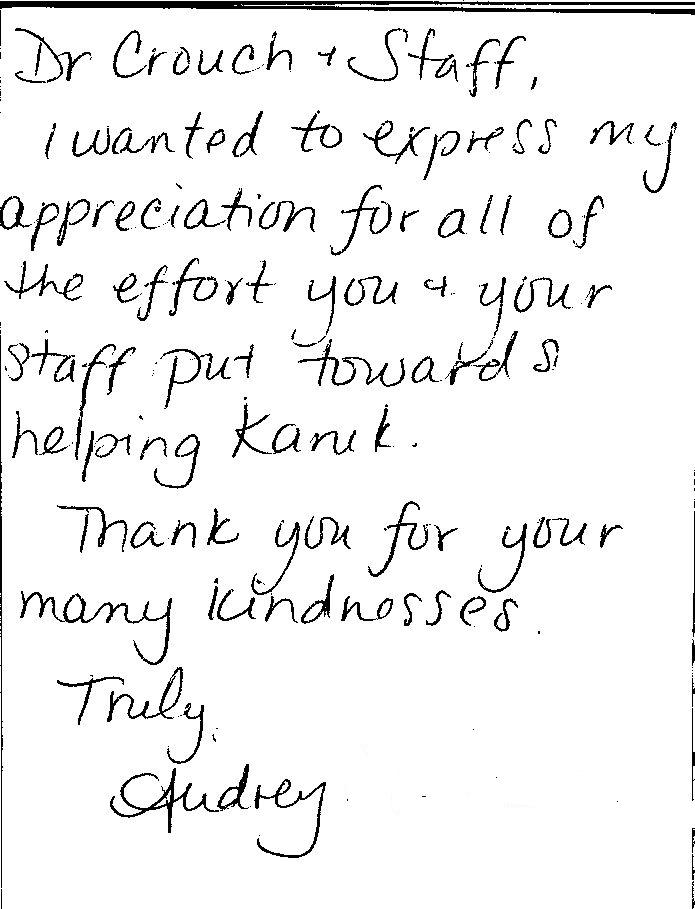 Dr Crouch + Staff,
I wanted to express my
appreciation for all of
the effort you & your
staff put towards
helping Kanik.
Thank you for your
many kindnesses.
Truly,
Audrey